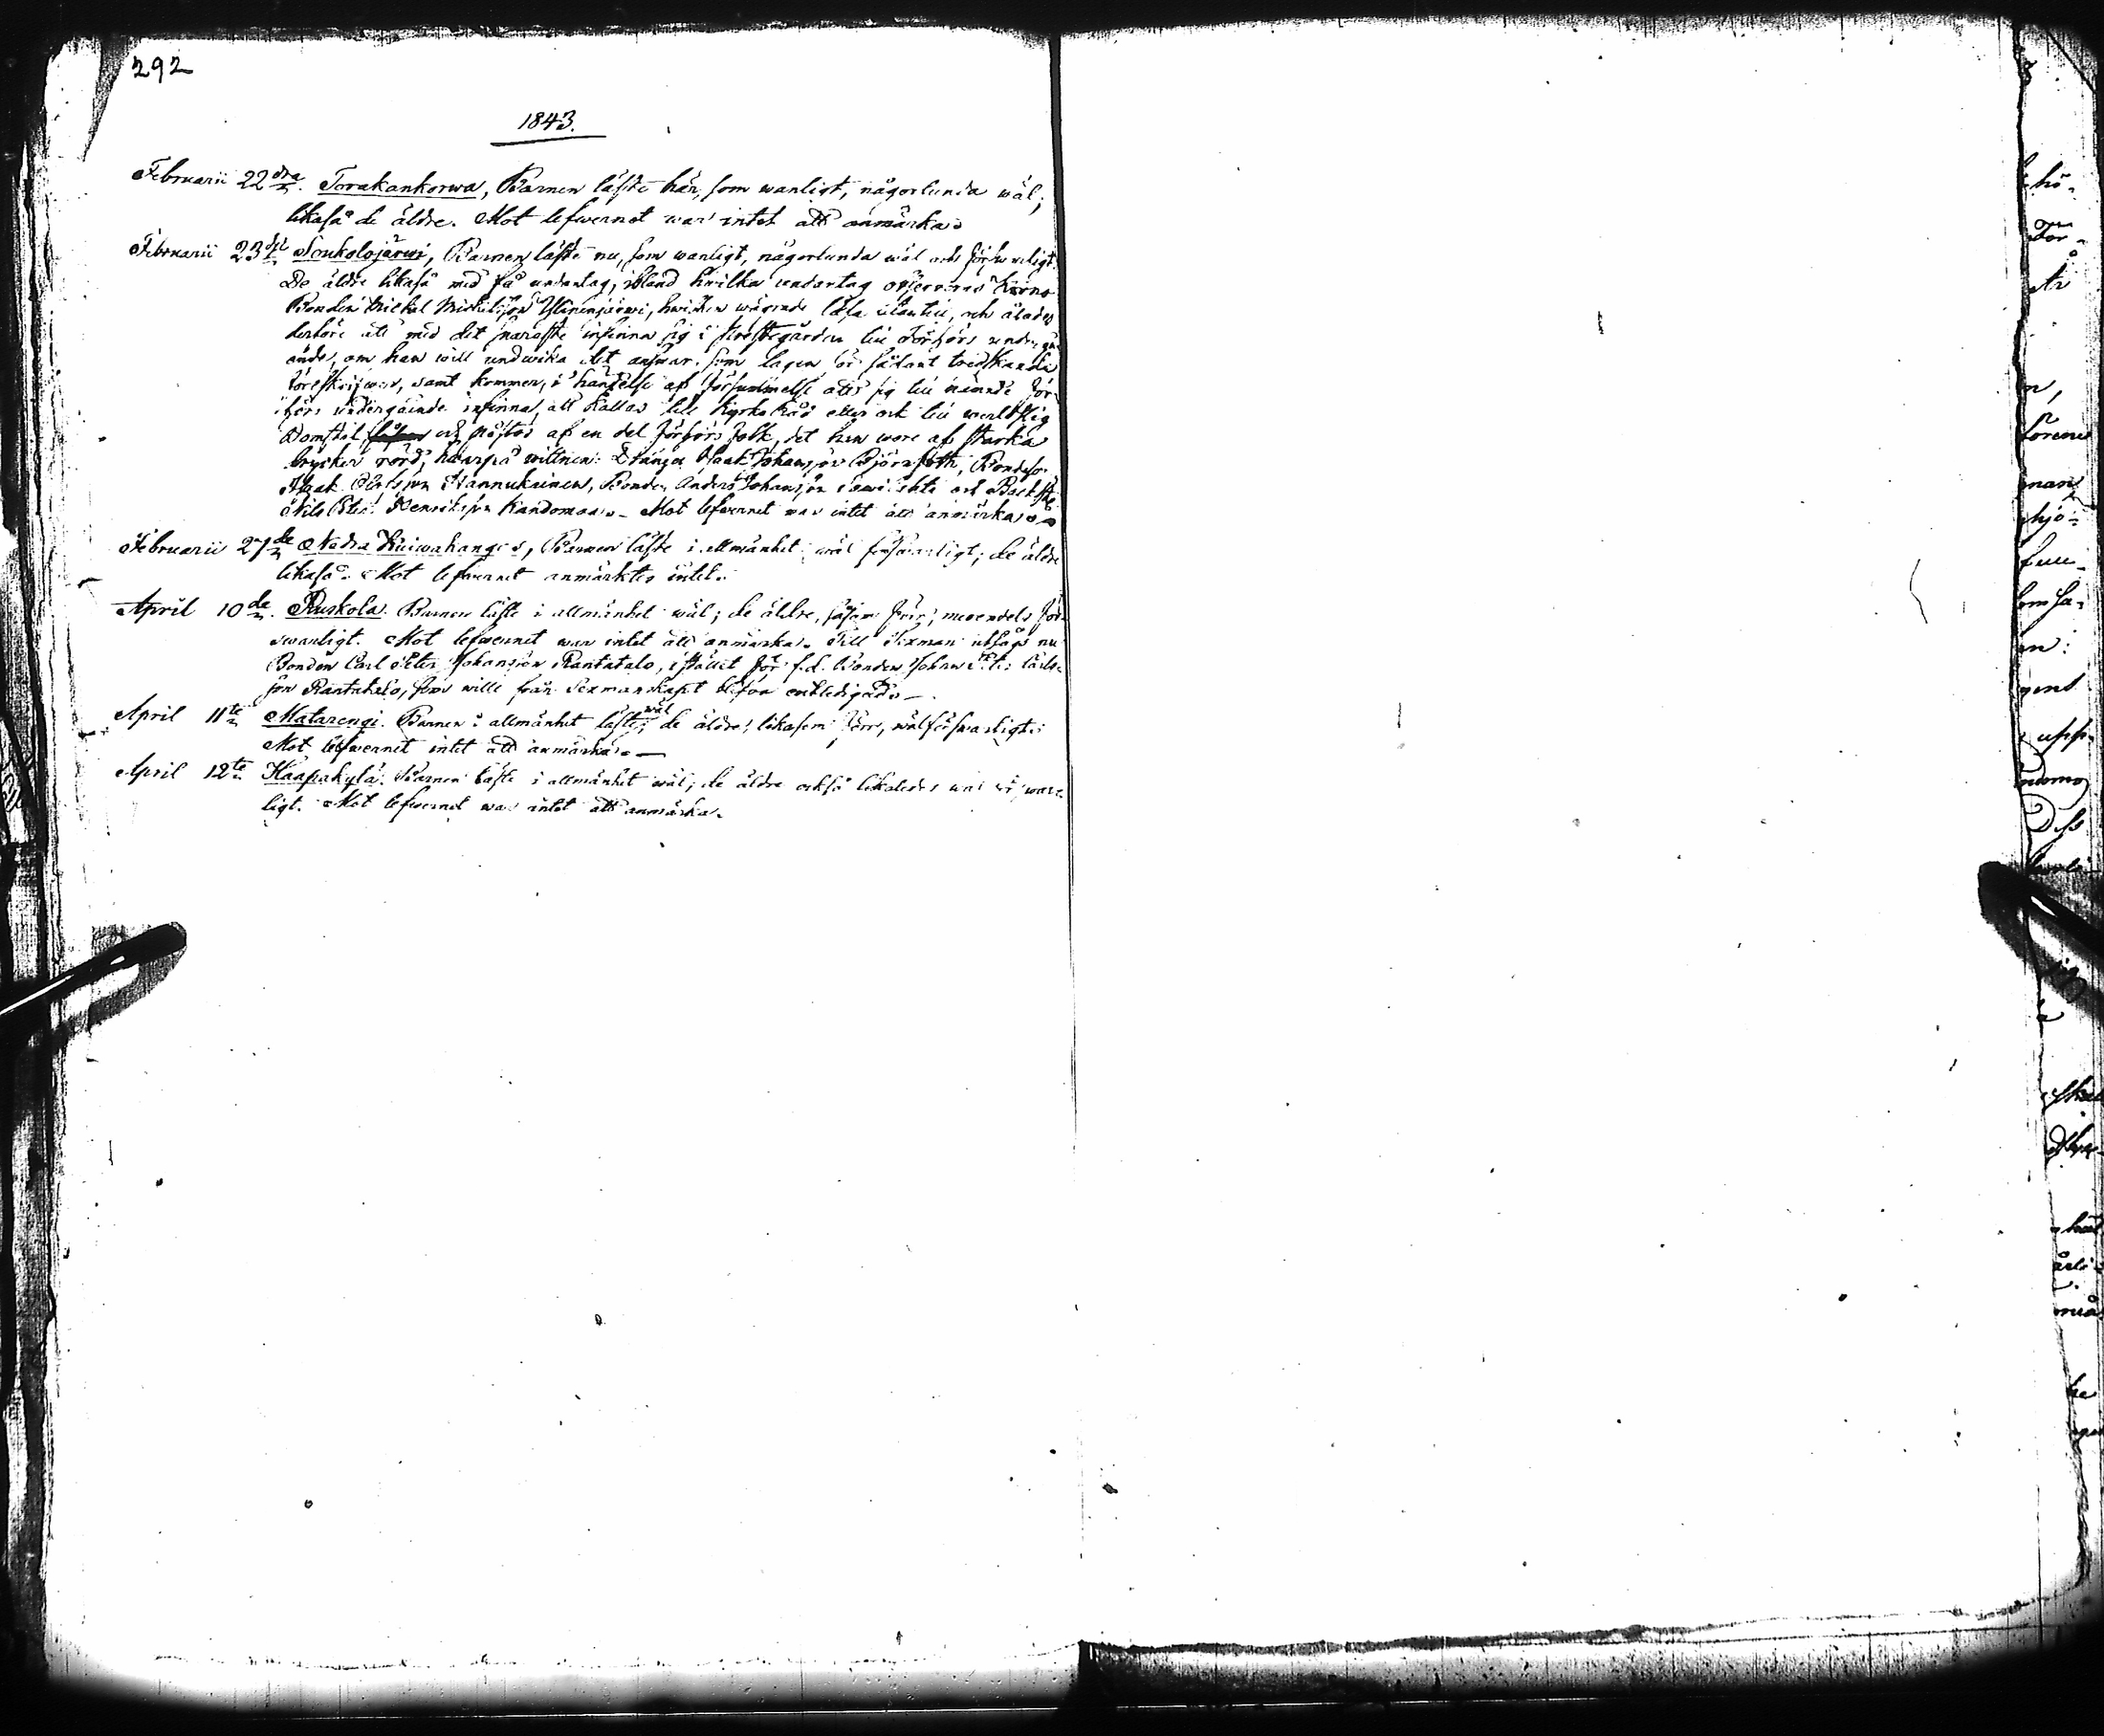 292
1843.
Februarii 22dra. Torakankorwa, Barnen läste här, som wanligt, någorlunda wäl;
likaså de äldre. Mot lefwernet war intet att anmärka.
Februarii 23dje Soukolojärwi, Barnen läste nu, som wanligt, någorlunda wäl och förswarligt.
De äldre likaså med få undantag, ibland hwilka undantag
Bonden Mickel Mickelsson hwilken wägrade läsa utantill, och ålades
derföre att med det snaraste infinna sig i prestegården till Förhörs undergå
ende, om han will undwika det answar, som lagen för sådant tredskande
föreskrifwer, samt kommer, i händelse af försummelse att sig till nämnde För-
hörs undergående infinna, att kallas till Kyrko Råd eller ock till werldslig
Domstol och af en del Förhörs folk, det han wore af starka
drycker rörd; häruppå wittnen: Isaak Johansson Björnfoth, Bondeso-
Isaak Olofsson Hannukainen, Bonden Anders Johansson och
Nils Petter Henriksson Kandomaa. Mot lefwernet war intet att anmärka.
Februarii 27de Nedra Kuiwakangas, Barnen läste i allmänhet wäl förswarligt; de äldre
likaså. Mot lefwernet anmärktes intet.
April 10de. Ruskola. Barnen läste i allmänhet wäl; de äldre, såsom förr, meendels för-
swarligt. Mot lefwernet war intet att anmärka. Till Sexman utsågs nu
Bonden Carl Petter Johansson Rantatalo, i stället för f.d. Bonden Johan Petter Carls-
son Rantatalo, som wille från Sexmanskapet blifwa entledigad.
April 11te Matarengi. Barnen i allmänhet läste wäl; de äldre, likasom förr, wälförswarligt;
Mot lefwernet intet att anmärka.
April 12te Haapakylä. Barnen läste i allmänhet wäl; de äldre också likaledes wäl förswar-
ligt. Mot lefwernet war intet att anmärka.